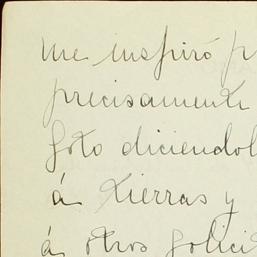 me inspiró p
precisamente
foto diciendol
á tierras y
á otros solici